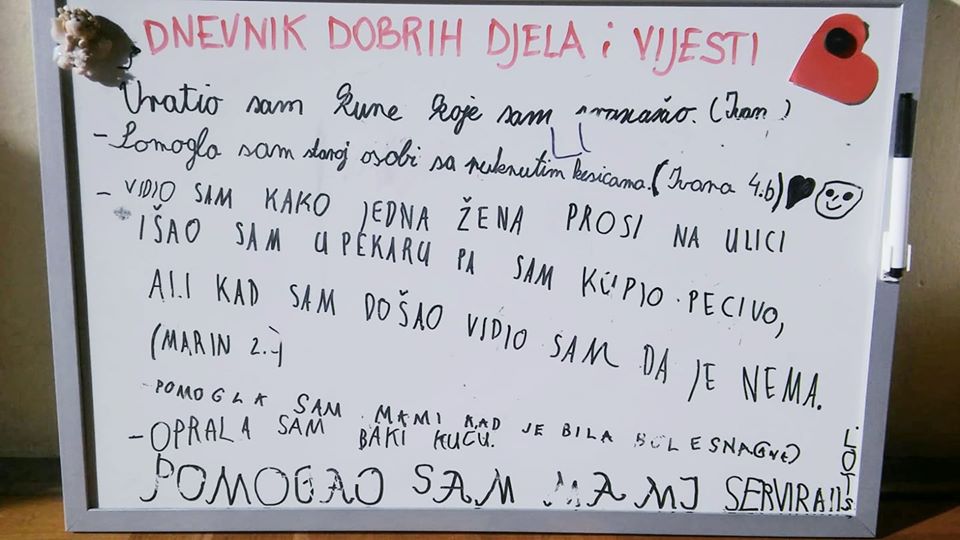 DNEVNIK DOBRIH DJELA i VIJESTI
Vratio sam kune koje sam pronašao. (Ivan)
- Pomogla sam staroj osobi sa puknutim kesicama. (Ivana 4.b)
- VIDIO SAM KAKO JEDNA ŽENA PROSI NA ULICI
IŠAO SAM U PEKARU PA SAM KUPIO PECIVO,
ALI KAD SAM DOŠAO VIDIO SAM DA JE NEMA.
(MARIN 2.-)
- POMOGLA SAM MAMI KAD JE BILA BOLESNA
- OPRALA SAM BAKI KUĆU.
POMOGAO SAM MAMI SERVIRATI
STOL.